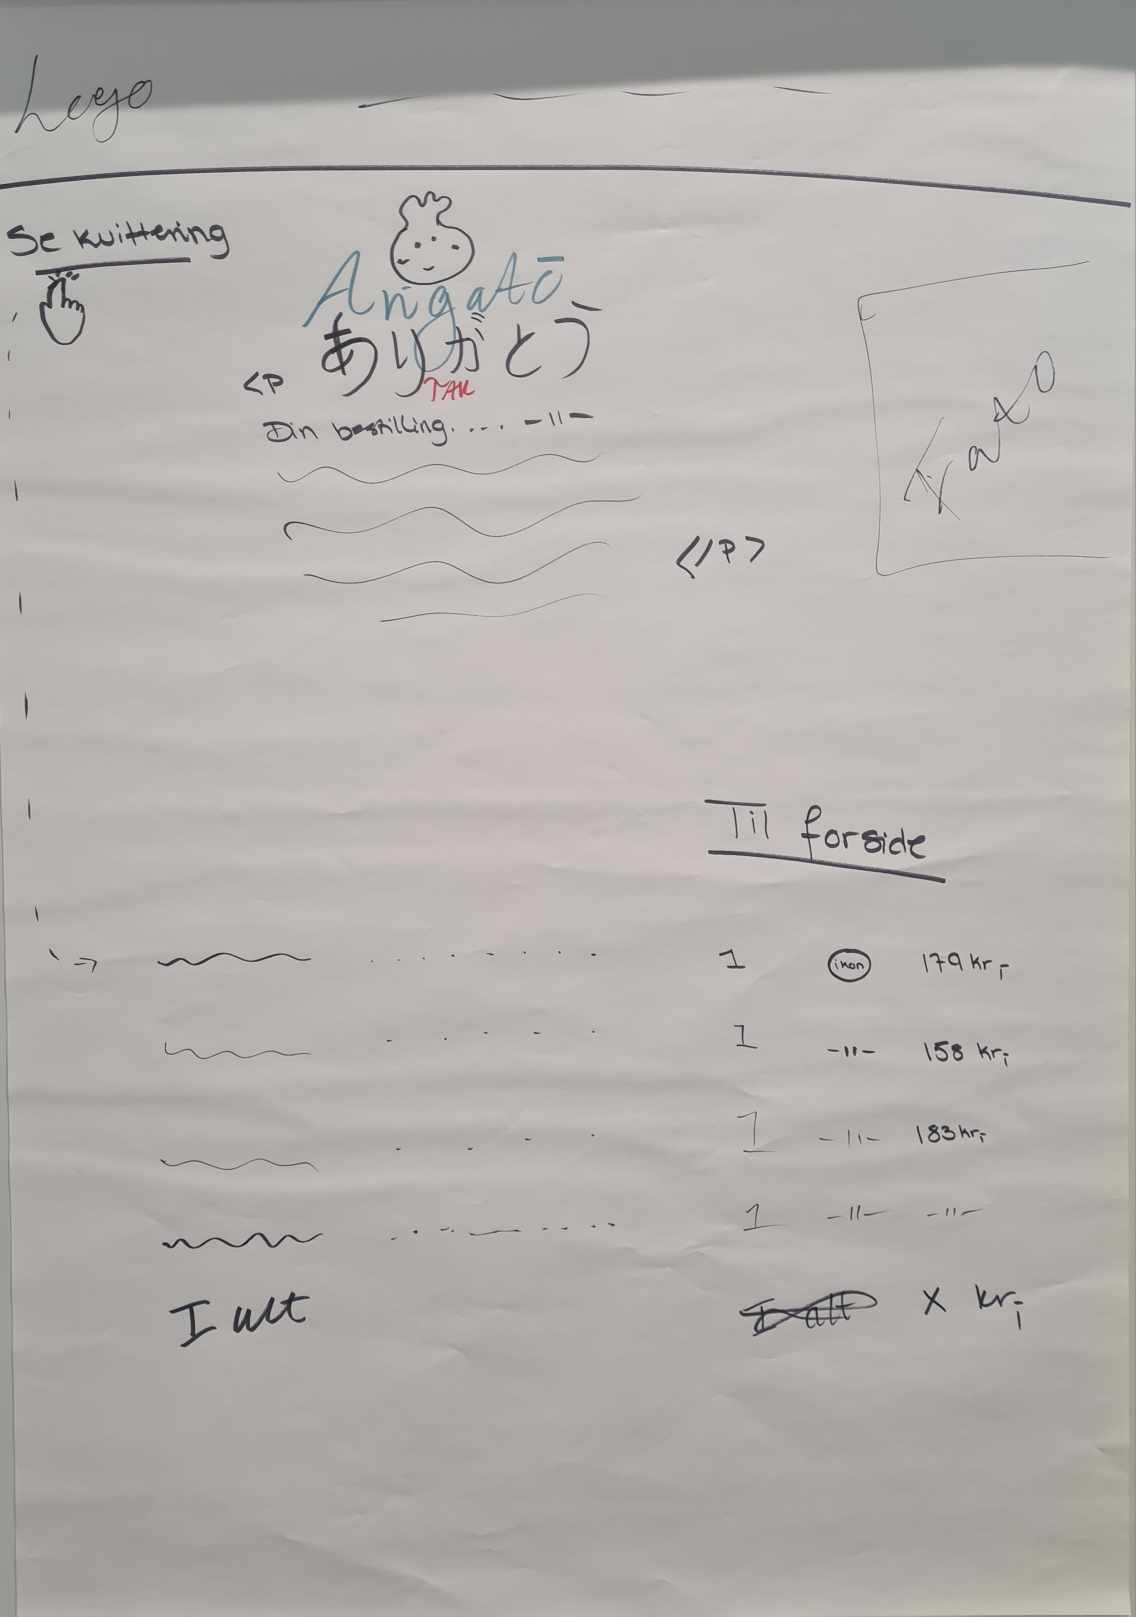 Logo
Se kvittering
Arigatō
ありがとう
<P
TAK
Din bestilling.... -||-
</P>
Til forside
1 ikon 179 kr,-
1 -||- 158 kr,-
1 -||- 183 kr,-
1 -||- -||-
I alt I alt X kr,-